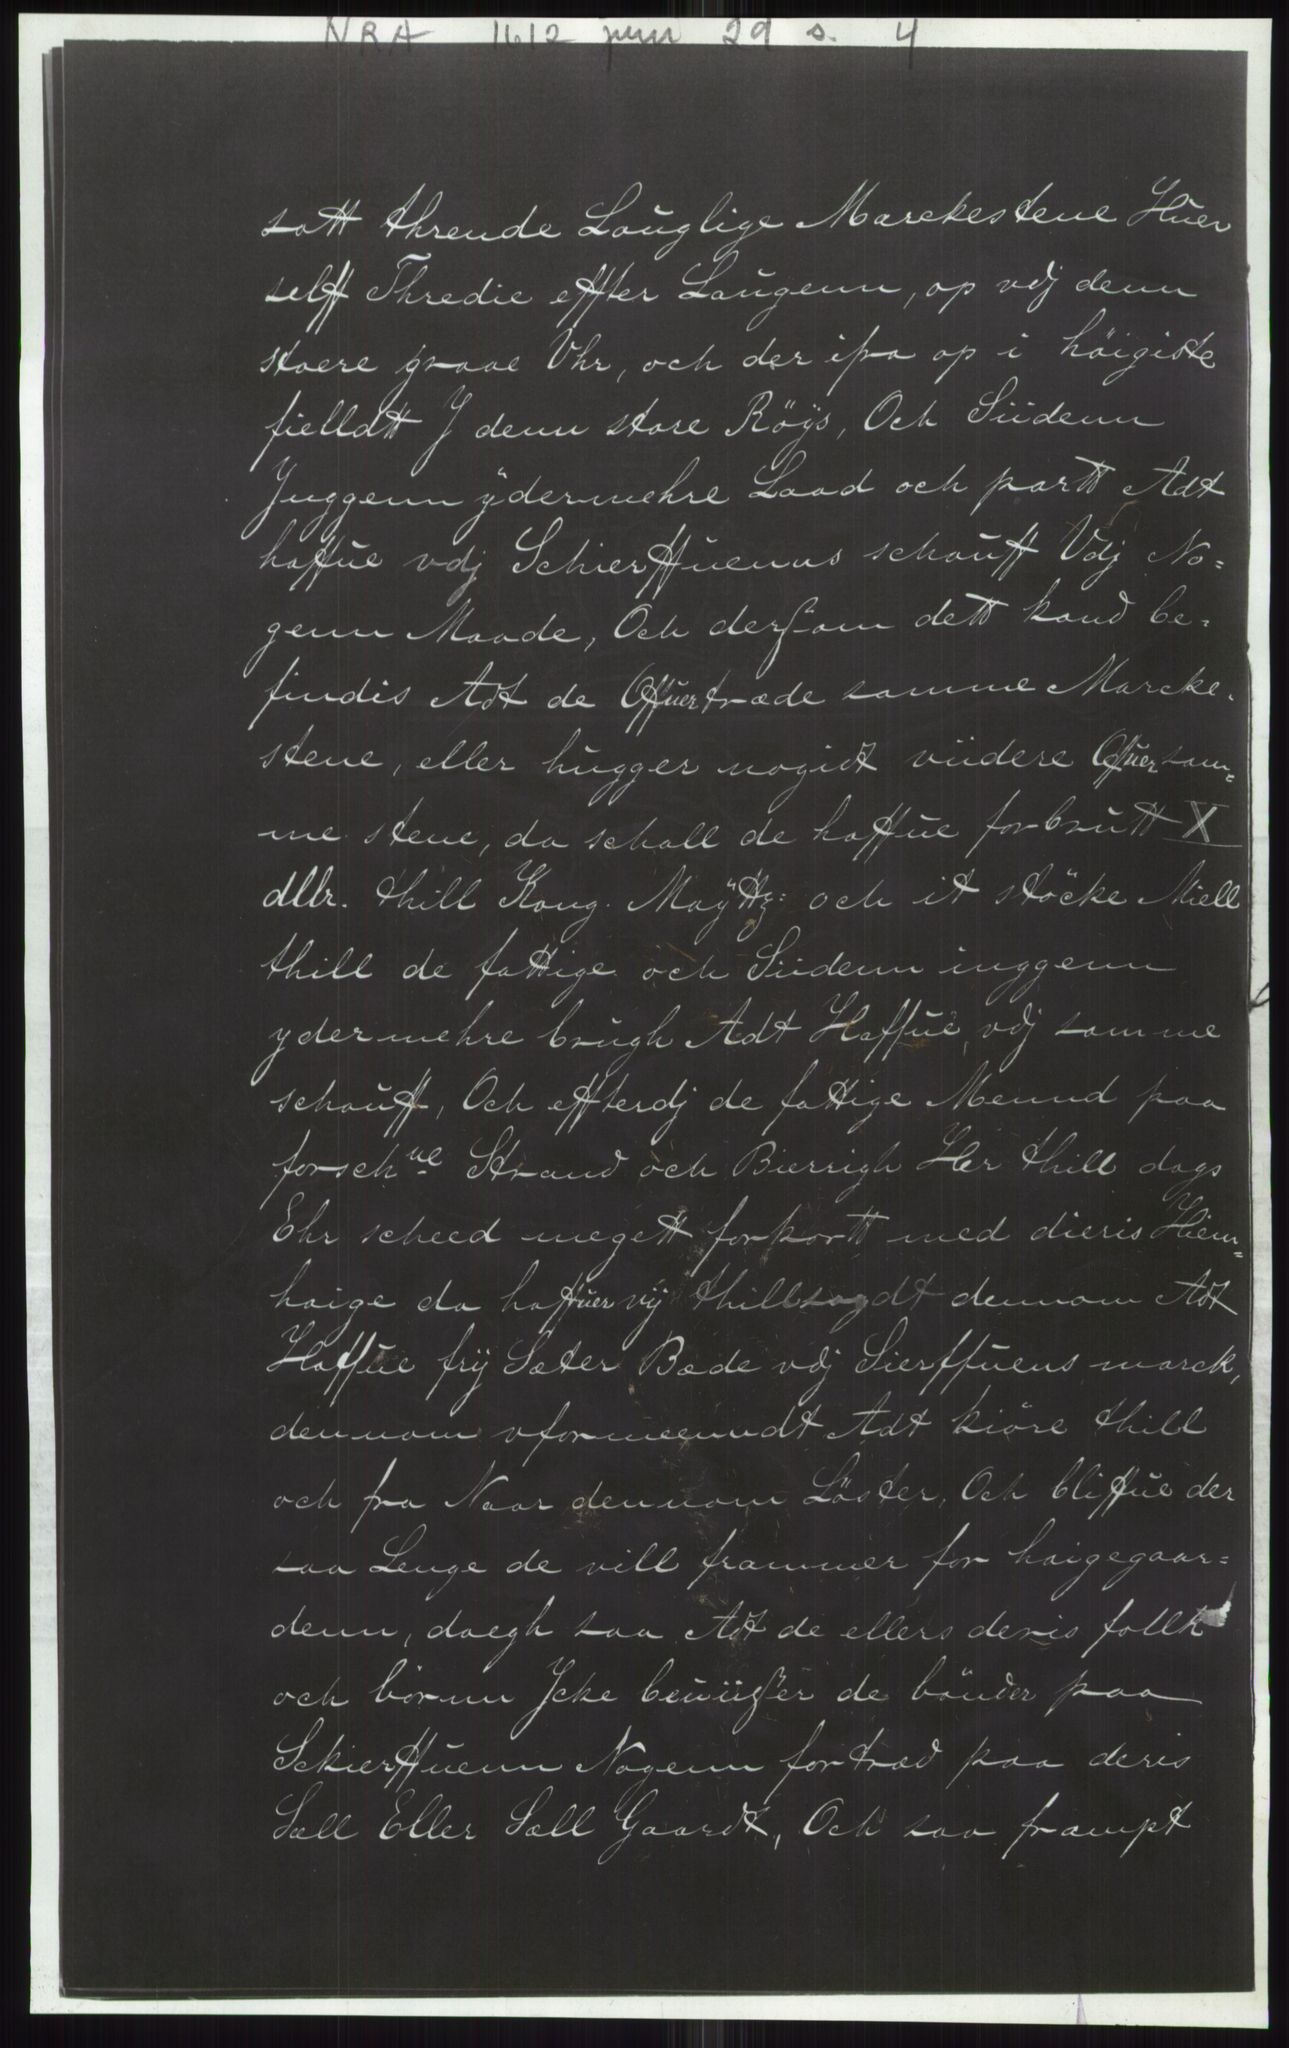 NRA 1612 juni 29 s. 4
satt thrende Lauglige Marckestene Huer
self Thredie effter Laugenn, op vdj denn
stoere graae Vhr, och der ifra op i höigiste
fielldtt J denn store Röÿs, Och Siidenn
Jnggenn ÿdermehre Laad och partt Adt
haffue vdj Schierffuenns schauff Vdj No=
genn Maade, Och dersom dett kand be=
findis Adt de Offuertræde samme Marcke=
stene, eller hugger nogidt viidere Offuer sam=
me stene, da schall de haffue forbrutt X
dllr. thill Kong. Maÿttz: och it stöcke Miell
thill de fattige och Siidenn inggenn
ydermehre brugh Adt Haffue, vdj samme
schauff, Och efterdj de fattige Mennd paa
forschne Strand och Bierrigh Her thill dags
Ehr scheed megett forkortt med dieris Hiem=
haige da haffuer vij thillsagdt dennom Adt
Haffue frÿ Sæter Bæde vdj Sierffuens marck,
dennom vformeenndt Adt kiöre thill
och fra Naar dennom Löster, Och bliffue der
saa Lenge de vill frammer for haigegaar=
denn, doegh saa Adt de ellers deris follk
och börnn Jcke beuiisser de bönder paa
Sckierffuenn Nogenn fortræd paa deris
Sæll Eller Sæll Gaardt, Och saa frampt